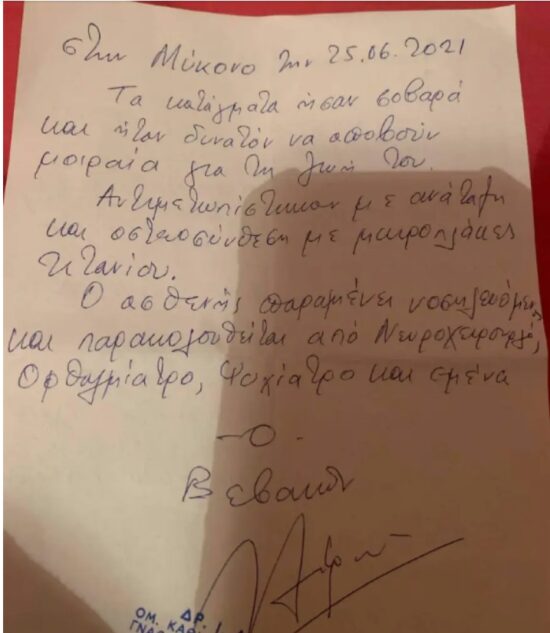 στην Μύκονο την 25.06.2021
Τα κατάγματα ήσαν σοβαρά
και ήταν δυνατόν να αποβούν
μοιραία για τη ζωή του.
Αντιμετωπίστηκαν με ανάταξη
και οστεοσύνθεση με μικροπλάκες
τιτανίου.
Ο ασθενής παραμένει νοσηλευόμενος
και παρακολουθείται από Νευροχειρουργό,
Οφθαλμίατρο, Ψυχίατρο και εμένα
—Ο.
Βεβαιών
ΔΡ.
ΟΜ. ΚΑΘ